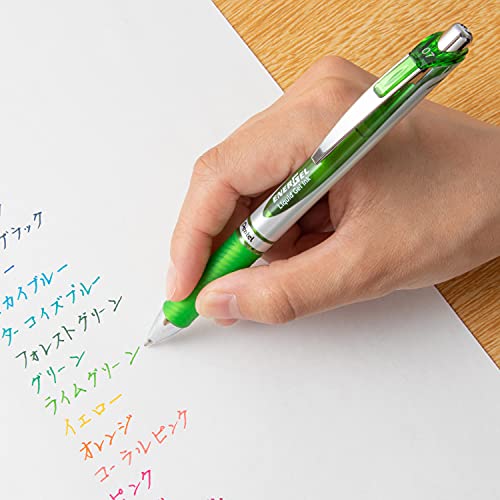 ブラック
ー
カイブルー
ターコイズブルー
フォレストグリーン
グリーン
ライムグリーン
イエロー
オレンジ
コーラルピンク
ピンク
07
ENERGEL
Liquid Gel Ink
Pentel